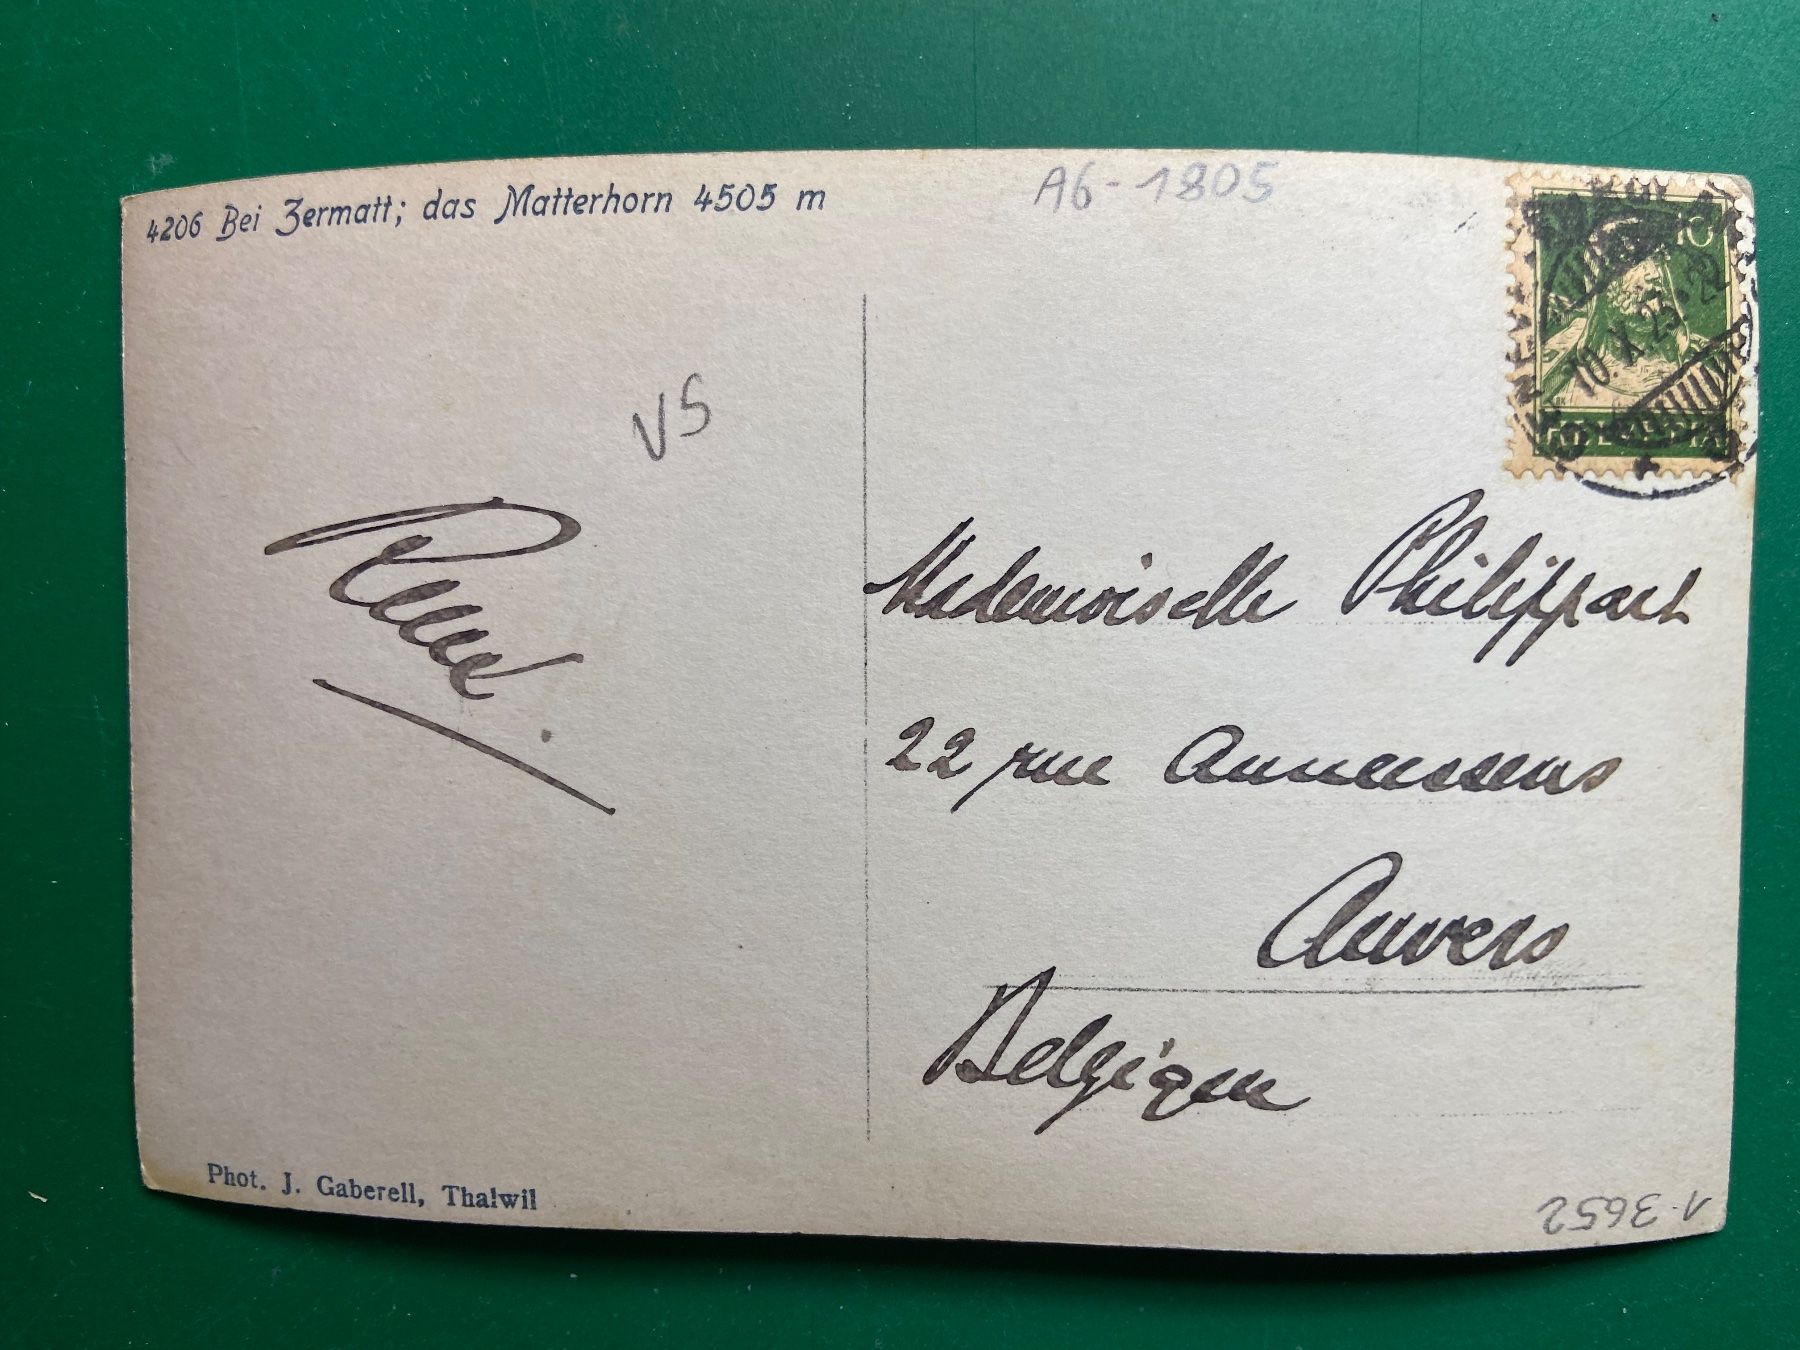 4206 Bei Zermatt; das Matterhorn 4505 m
A6-1805
10
10.X.23.22
HELVETIA
VS
René.
Mademoiselle Philippart
22 rue Anneessens
Anvers
Belgique
Phot. J. Gaberell, Thalwil
1-3652